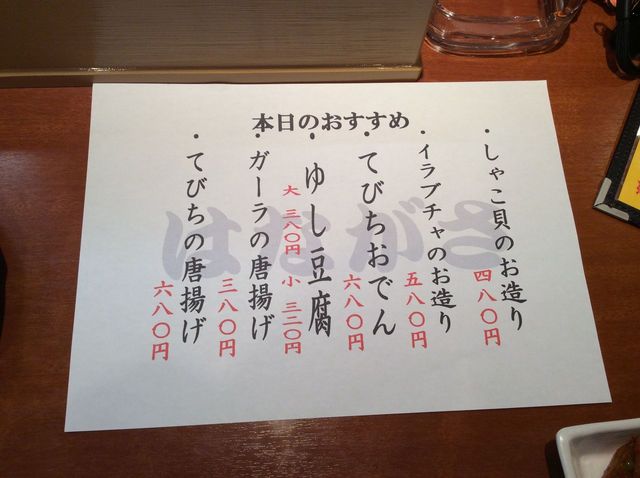 本日のおすすめ
・しゃこ貝のお造り
四八〇円
・イラブチャのお造り
五八〇円
・てびちおでん
六八〇円
・ゆし豆腐
大 三八〇円 小 三二〇円
・ガーラの唐揚げ
三八〇円
・てびちの唐揚げ
六八〇円